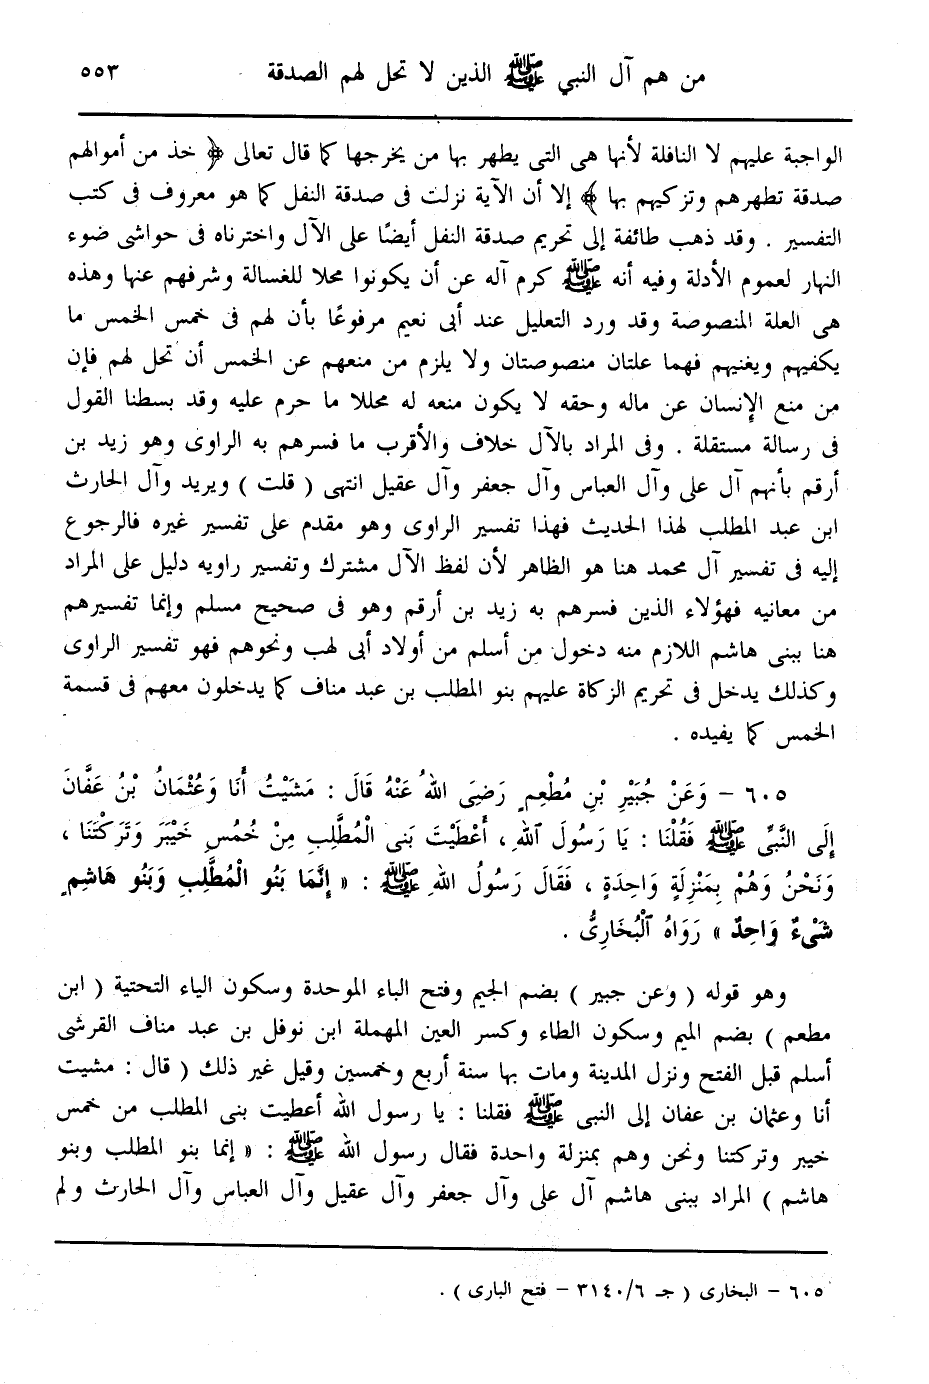 من هم آل النبي ﷺ الذين لا تحل لهم الصدقة ٥٥٣
الواجبة عليهم لا النافلة لأنها هى التى يطهر بها من يخرجها كما قال تعالى ﴿ خذ من أموالهم
صدقة تطهرهم وتزكيهم بها ﴾ إلا أن الآية نزلت فى صدقة النفل كما هو معروف فى كتب
التفسير . وقد ذهب طائفة إلى تحريم صدقة النفل أيضًا على الآل واخترناه فى حواشى ضوء
النهار لعموم الأدلة وفيه أنه ﷺ كرم آله عن أن يكونوا محلا للغسالة وشرفهم عنها وهذه
هى العلة المنصوصة وقد ورد التعليل عند أبى نعيم مرفوعًا بأن لهم فى خمس الخمس ما
يكفيهم ويغنيهم فهما علتان منصوصتان ولا يلزم من منعهم عن الخمس أن تحل لهم فإن
من منع الإنسان عن ماله وحقه لا يكون منعه له محللا ما حرم عليه وقد بسطنا القول
فى رسالة مستقلة . وفى المراد بالآل خلاف والأقرب ما فسرهم به الراوى وهو زيد بن
أرقم بأنهم آل على وآل العباس وآل جعفر وآل عقيل انتهى ( قلت ) ويريد وآل الحارث
ابن عبد المطلب لهذا الحديث فهذا تفسير الراوى وهو مقدم على تفسير غيره فالرجوع
إليه فى تفسير آل محمد هنا هو الظاهر لأن لفظ الآل مشترك وتفسير راويه دليل على المراد
من معانيه فهؤلاء الذين فسرهم به زيد بن أرقم وهو فى صحيح مسلم وإنما تفسيرهم
هنا ببنى هاشم اللازم منه دخول من أسلم من أولاد أبى لهب ونحوهم فهو تفسير الراوى
وكذلك يدخل فى تحريم الزكاة عليهم بنو المطلب بن عبد مناف كما يدخلون معهم فى قسمة
الخمس كما يفيده .
٦٠٥ – وَعَنْ جُبَيْرِ بْنِ مُطْعِمٍ رَضِىَ اللهُ عَنْهُ قَالَ : مَشَيْتُ أَنَا وَعُثْمَانُ بْنُ عَفَّانَ
إِلَى النَّبِّى ﷺ فَقُلْنَا : يَا رَسُولَ اللهِ ، أَعْطَيْتَ بَنِى الْمُطَّلِبِ مِنْ خُمُسِ خَيْبَرَ وَتَرَكْتَنَا ،
وَنَحْنُ وَهُمْ بِمَنْزِلَةٍ وَاحِدَةٍ ، فَقَالَ رَسُولُ اللهِ ﷺ : « إِنَّمَا بَنُو الْمُطَّلِبِ وَبَنُو هَاشِمٍ
شَىْءٌ وَاحِدٌ » رَوَاهُ الْبُخَارِىُّ .
وهو قوله ( وعن جبير ) بضم الجيم وفتح الباء الموحدة وسكون الياء التحتية ( ابن
مطعم ) بضم الميم وسكون الطاء وكسر العين المهملة ابن نوفل بن عبد مناف القرشى
أسلم قبل الفتح ونزل المدينة ومات بها سنة أربع وخمسين وقيل غير ذلك ( قال : مشيت
أنا وعثمان بن عفان إلى النبى ﷺ فقلنا : يا رسول الله أعطيت بنى المطلب من خمس
خيبر وتركتنا ونحن وهم بمنزلة واحدة فقال رسول الله ﷺ : « إنما بنو المطلب وبنو
هاشم ) المراد ببنى هاشم آل على وآل جعفر وآل عقيل وآل العباس وآل الحارث ولم
٦٠٥ – البخارى ( جـ ٣١٤٠/٦ – فتح البارى ) .